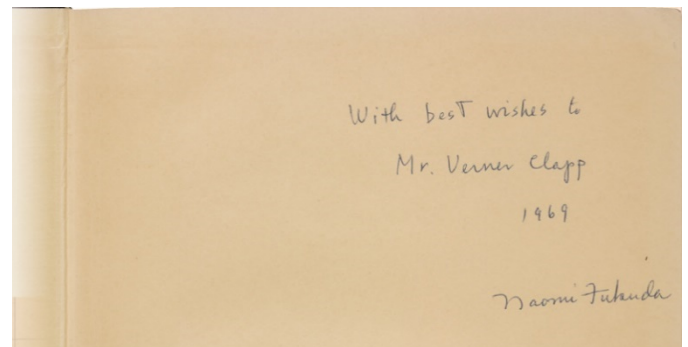 With best wishes to
Mr. Verner Clapp
1969
Naomi Fukuda